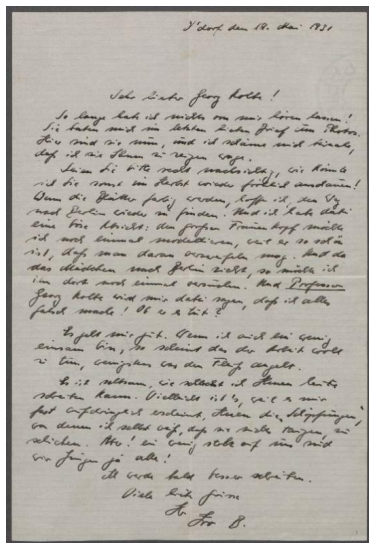 D'dorf, den 18. Mai 1931
Sehr lieber Georg Kolbe!
So lange hab ich nichts von mir hören lassen!
Sie baten mich im letzten lieben Brief um Photos.
Hier sind sie nun, und ich schäme mich beinahe,
daß ich sie Ihnen zu zeigen wage.
Seien Sie bitte recht nachsichtig, wie könnte
ich Sie sonst im Herbst wieder fröhlich anschauen!
Wenn die Blätter farbig werden, hoffe ich, den Weg
nach Berlin wieder zu finden. Und ich habe dabei
eine böse Absicht: den großen Frauenkopf möchte
ich noch einmal modellieren, weil er so schön
ist, daß man daran verzweifeln mag. Und da
das Mädchen nach Berlin zieht, so möchte ich
ihn dort noch einmal versuchen. Und Professor
Georg Kolbe wird mir dabei sagen, daß ich alles
falsch mache! Ob er es tut?
Es geht mir gut. Wenn ich auch ein wenig
einsam bin, so scheint das der Arbeit wohl
zu tun, wenigstens was den Fleiß angeht.
Es ist seltsam, wie schlecht ich Ihnen heute
schreiben kann. Vielleicht ist es, weil es mir
fast aufdringlich erscheint, Ihnen die "Schöpfungen",
von denen ich selbst weiß, daß sie nichts taugen, zu
schicken. Aber! ein wenig stolz auf uns sind
wir Jungen ja alle!
Ich werde bald besser schreiben.
Viele liebe Grüsse
Ihr
B.